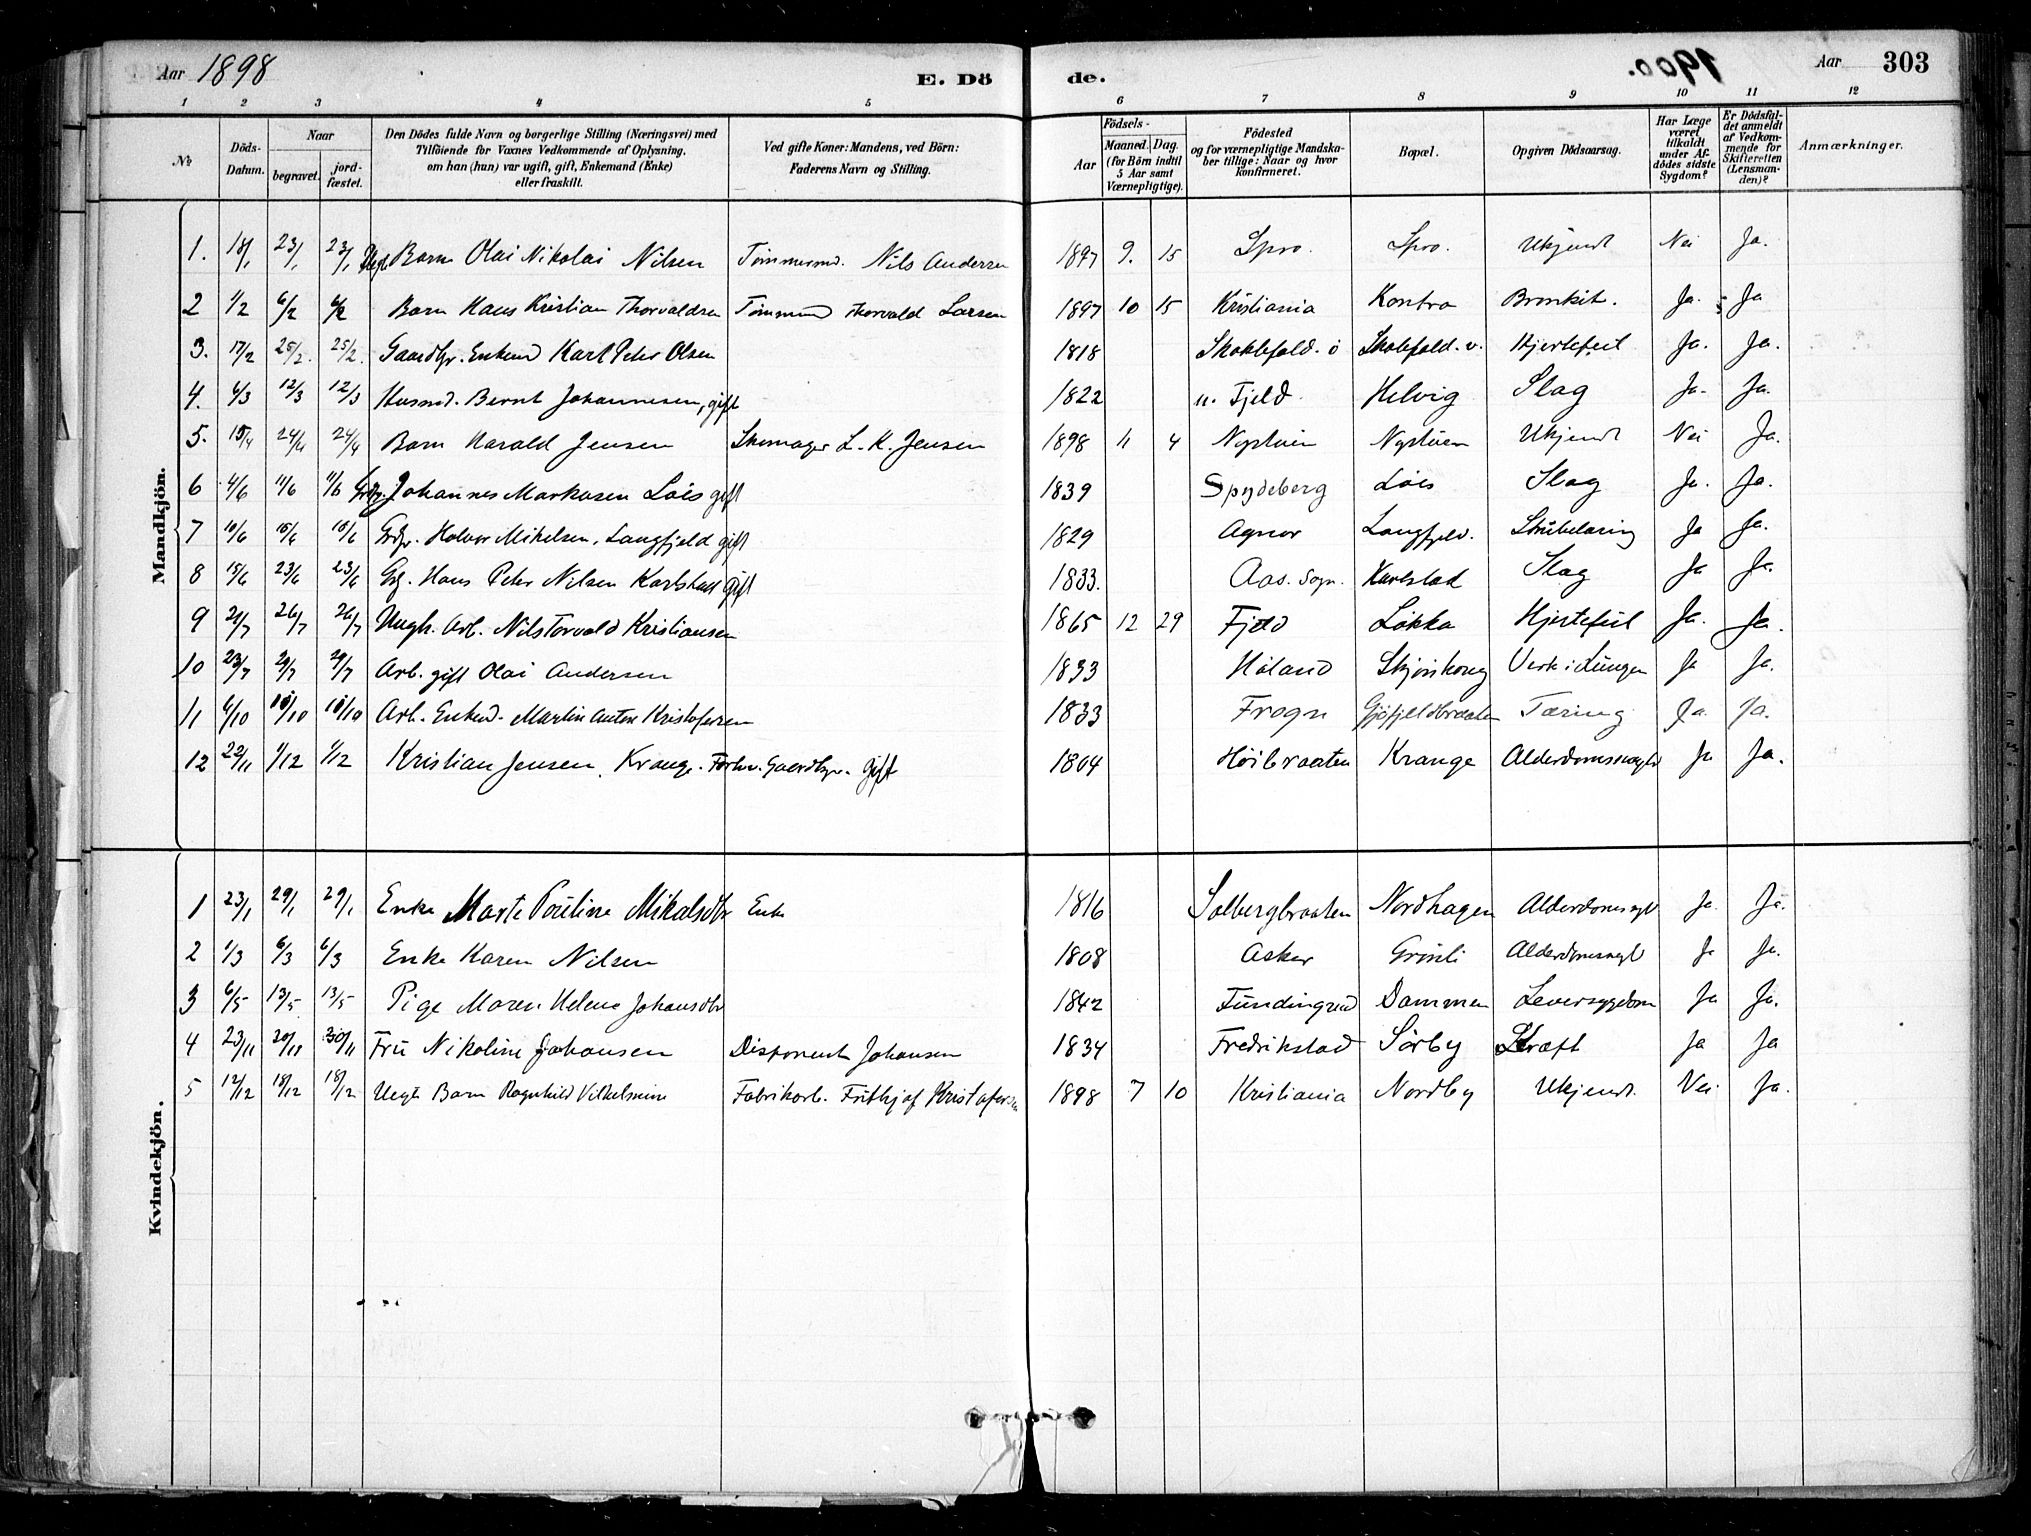 Aar 1898 E. Dö de. 1900. Aar 303
1 2 3 4 5 6 7 8 9 10 11 12
№
Döds-Datum.
Naar
begravet. jord-fæstet.
Den Dödes fulde Navn og borgerlige Stilling (Næringsvei) med
Tilföiende for Voxnes Vedkommende af Oplysning.
om han (hun) var ugift, gift, Enkemand (Enke)
eller fraskilt.
Ved gifte Koner: Mandens, ved Börn:
Faderens Navn og Stilling.
Födsels-
Aar
Maaned. Dag.
(for Börn indtil
5 Aar samt
Værnepligtige).
Födested
og for værnepligtige Mandska-
ber tillige: Naar og hvor
konfirmeret.
Bopæl.
Opgiven Dödsaarsag.
Har Læge
været
tilkaldt
under Af-
dødes sidste
Sygdom?
Er Dödsfal-
det anmeldt
af Vedkom-
mende for
Skifteretten
(Lensman-
den)?
Anmærkninger.
Mandkjön.
1. 18/1 23/1 23/1 Barn Olai Nikolai Nilsen Tømmermd. Nils Andersen 1897 9. 15 Spro. Spro. Ukjendt Nei Ja.
2 1/2 6/2 6/2 Barn Hans Kristian Thorvaldsen Tømmermd Thorvald Larsen 1897 10 15 Kristiania Kontra Bronkit. Ja. Ja
3. 17/2 25/2. 25/2. Gaardbr. Enkemd Karl Peter Olsen 1818 Skoklefald. ö Skoklefald. v. Hjertefeil Ja. Ja.
4. 6/3 12/3 12/3 Husmd. Bernt Johannesen, gift 1822 n. Fjeld Helvig Slag Ja. Ja.
5. 15/4 24/4 24/4 Barn Harald Jensen Skomager L. K. Jensen 1898 11 4 Nystuen Nystuen Ukjendt Nei Ja.
6 4/6 11/6 11/6 Grdbr. Johannes Markusen Löes gift 1839 Spydeberg Löes Slag Ja. Ja.
7 10/6 15/6 15/6 Grdbr. Halvor Mikelsen, Langfjeld gift 1829 Agnor Langfjeld. Strubelaring Ja Ja.
8 15/6 23/6 23/6 Grdb. Hans Peter Nilsen Karlstad gift 1833. Aas. Sogn. Karlstad Slag Ja Ja.
9 21/7 26/7 26/7 Ungk. Arb. Nils Torvald Kristiansen 1865 12 29 Fjeld Lökka Hjertefeil Ja. Ja.
10 23/7 29/7 29/7 Arb. gift Olai Andersen 1833 Höland Skjönhoug Verk i Lungen Ja Ja.
11 6/10 10/10 10/10 Arb. Enkmd. Martin Anton Kristofersen 1833 Frogn Gjöfjeldbraaten Tæring Ja. Ja.
12 22/11 1/12 1/12 Kristian Jensen, Krange. Forhv. Gaardbr. gift 1804 Höibraaten Krange Alderdomssvagh Ja Ja.
Kvindekjön.
1 23/1 29/1 29/1 Enke Marte Pouline Mikalsdtr Enke 1816 Solbergbraaten Nordhagen Alderdomssvgh Ja. Ja.
2 1/3 6/3 6/3 Enke Karen Nilsen 1808 Asker Grönli Alderdomssvgh Ja Ja.
3 6/5 13/5 13/5 Pige Maren Helene Johansdtr 1842 Fundingrud Dammen Leversygdom Ja Ja.
4 23/11 30/11 30/11 Fru Nikoline Johansen Disponent Johansen 1834 Fredrikstad Sörby Kræft Ja Ja
5 12/12 18/12 18/12 Uegte Barn Ragnhild Vilhelmine Fabrikarb. Frithjof Kristofersen 1898 7 10 Kristiania Nordby Ukjendt. Nei Ja.